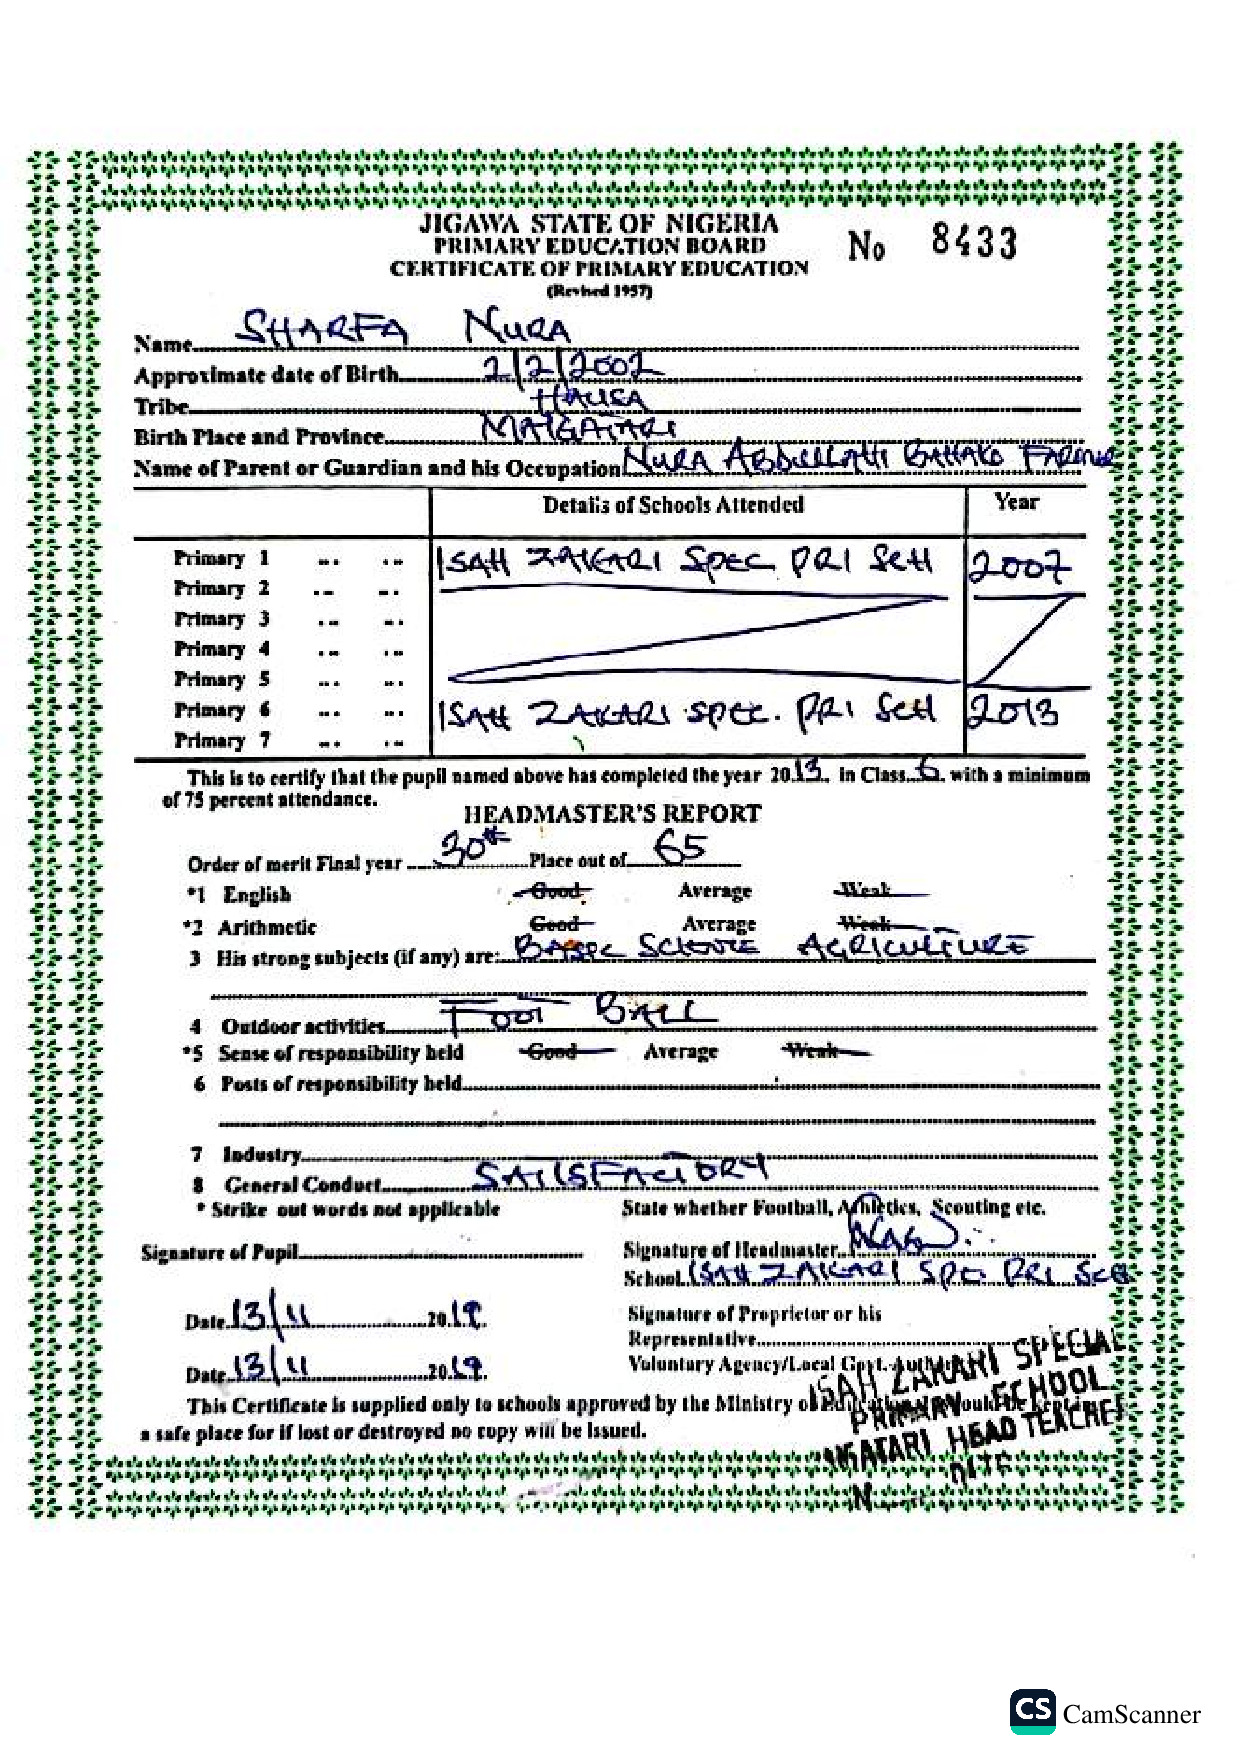 JIGAWA STATE OF NIGERIA
PRIMARY EDUCATION BOARD
CERTIFICATE OF PRIMARY EDUCATION
(Revised 1957)
No 8433
Name SHARFA NURA
Approximate date of Birth 2/2/2002
Tribe HAUSA
Birth Place and Province MAIGATARI
Name of Parent or Guardian and his Occupation NURA ABDULLAHI GAHAKO FARMER
Details of Schools Attended Year
Primary 1 .. .. ISAH ZAKARI SPEC PRI SCH 2007
Primary 2 .. ..
Primary 3 .. ..
Primary 4 .. ..
Primary 5 .. ..
Primary 6 .. .. ISAH ZAKARI SPEC. PRI SCH 2013
Primary 7 .. ..
This is to certify that the pupil named above has completed the year 2013. In Class 6 with a minimum
of 75 percent attendance.
HEADMASTER'S REPORT
Order of merit Final year 30th Place out of 65
*1 English Good Average Weak
*2 Arithmetic Good Average Weak
3 His strong subjects (if any) are: BASIC SCIENCE AGRICULTURE
4 Outdoor activities FOOT BALL
*5 Sense of responsibility held Good Average Weak
6 Posts of responsibility held
7 Industry
8 General Conduct SATISFACTORY
* Strike out words not applicable State whether Football, Athletics, Scouting etc.
Signature of Pupil Signature of Headmaster
School ISAH ZAKARI SPE PRI SCH
Date 13/11 2019. Signature of Proprietor or his
Representative
Date 13/11 2019. Voluntary Agency/Local Govt.
This Certificate is supplied only to schools approved by the Ministry of
a safe place for if lost or destroyed no copy will be issued.
ISAH ZAKARI SPECIAL
PRIMARY SCHOOL
HEAD TEACHER
DATE
CS CamScanner